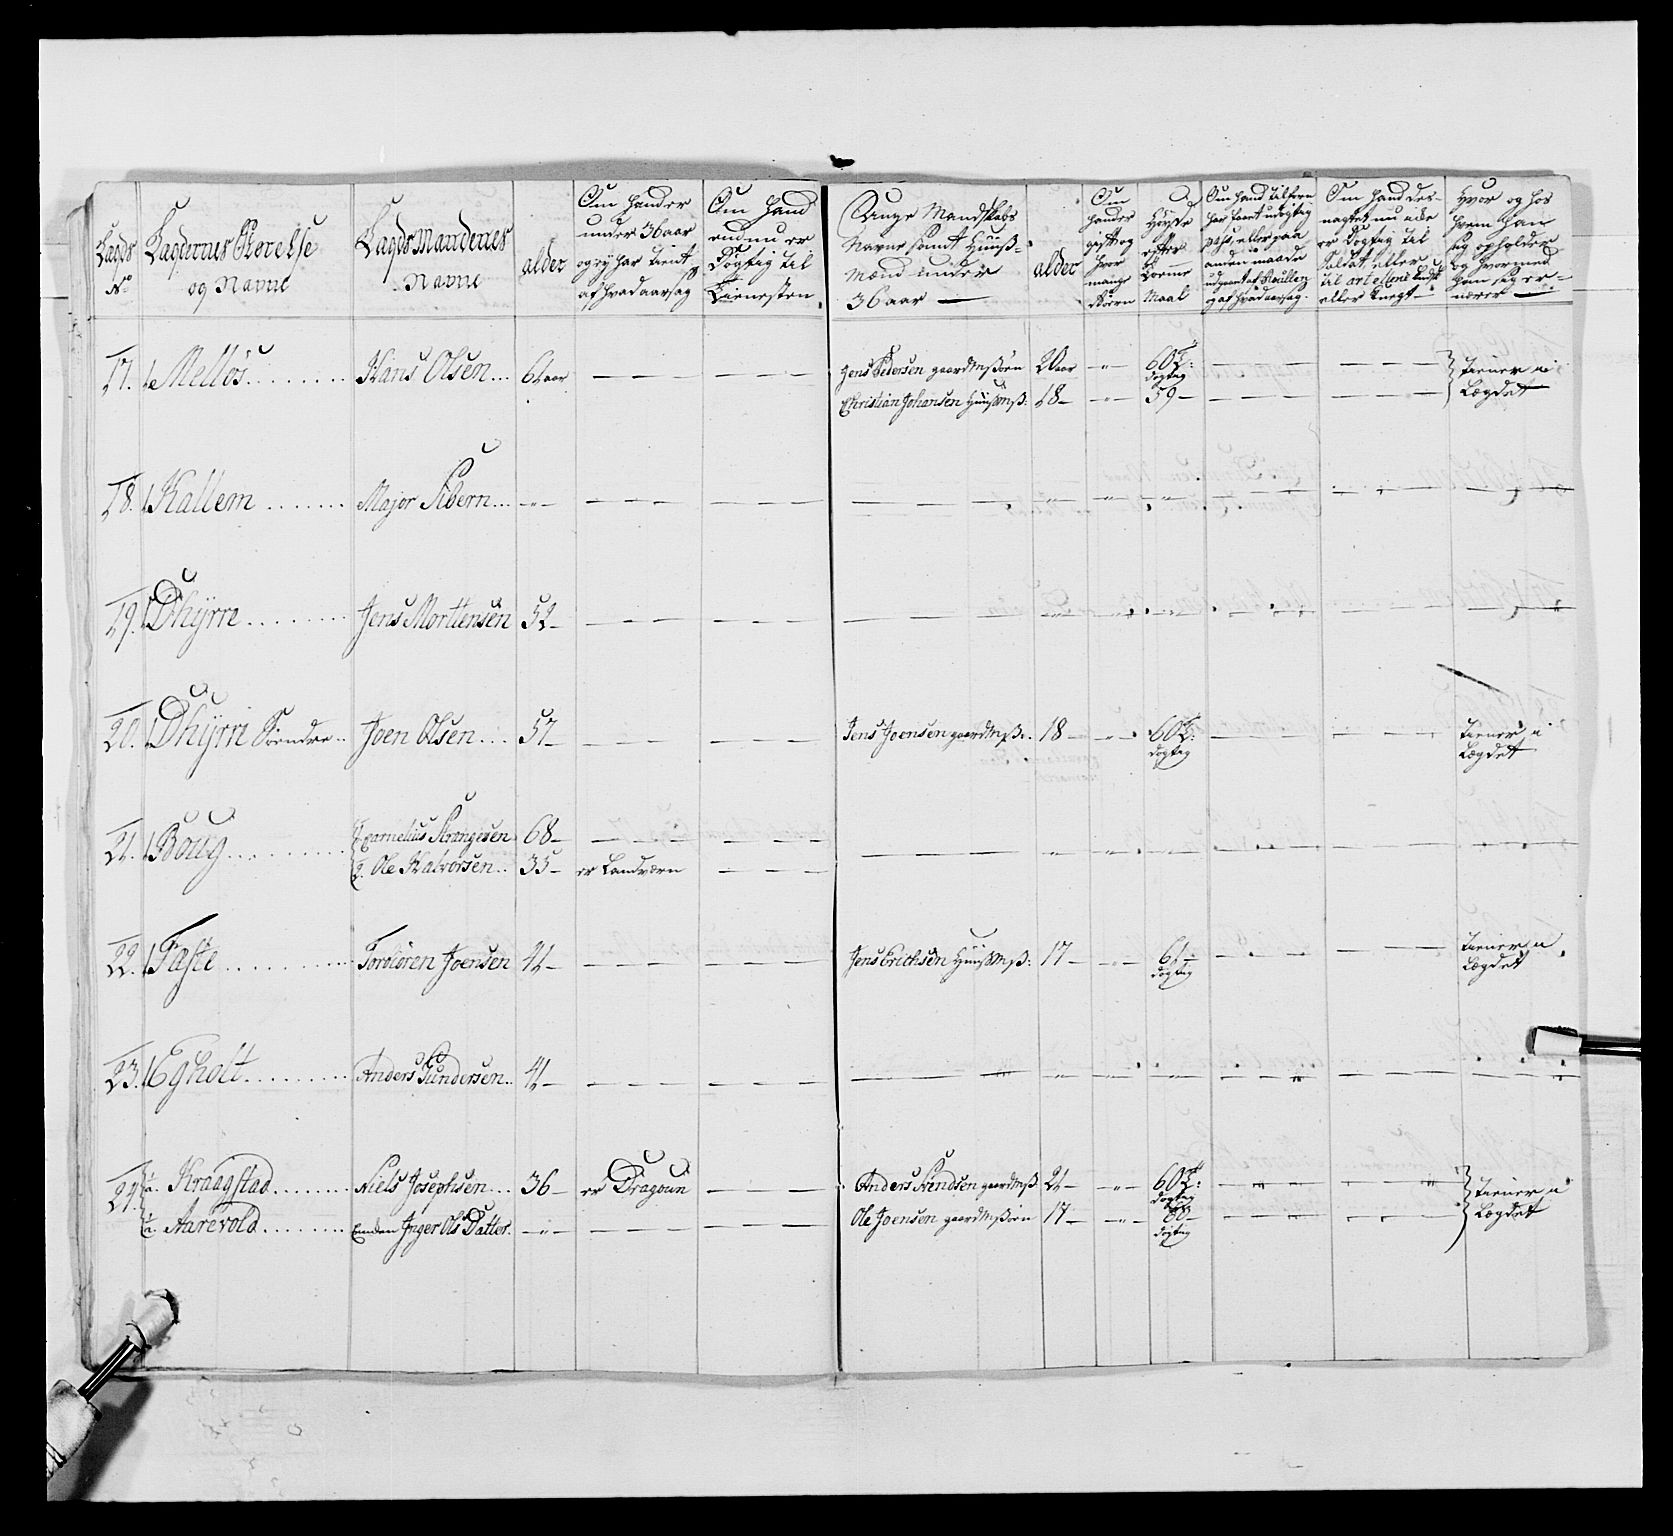 Lægds No
Lægdernes Størrelse og Navne
Lægds Mændenes Navne
alder
Om hand er under 36 aar og ey har tient af hvad aarsag
Om hand endnu er Døgtig til Tienesten
Unge Mandskabs Navne, samt Huuß-Mænd under 36 aar
alder
Om hand er gift og hvor mange Børn
Høyde efter Tomme Maal
Om hand tilforn har faaet udygtig Pass, eller paa anden maade udgaaet af Rullen og af hvad aarsag
Om hand des- nagtet nu ikke er Døgtig til Soldat eller til eller Knegt
Hvor og hos hvem han sig opholder og hvormed han sig er- nærer
17. 1 Melløs Hans Olsen 61 aar Jens Pedersen gaardMßøn 20 aar 60½: døgtig Tiener i
Christian Johansen HuußMß: 18 59 Lægdet
18. 1 Kallem Major Sibern
19. 1 Dhÿrre Jens Mortensen 52
20. 1 Dhÿrre Søndre Joen Olsen 57 Jens Joensen gaardMß. 18 60½: døgtig Tiener i Lægdet
21. 1 Boug 1 Carnelius Strangesen 68
2. Ole Halvorsen 35 er Landværn
22. 1 Faste Tordsøren Joensen 44 Jens Erichsen HuußMß: 17 61 døgtig Tiener i Lægdet
23. 1 Egholt Anders Gundersen 41
24. ½ Kraagstad Niels Josephsen 36 er Dragoun Anders Svendsen gaardMß 21 60½: døgtig Tiener i
½ Aarevold Enken Inger Ols Datter Ole Joensen gaardMßøn 17 60 døgtig Lægdet